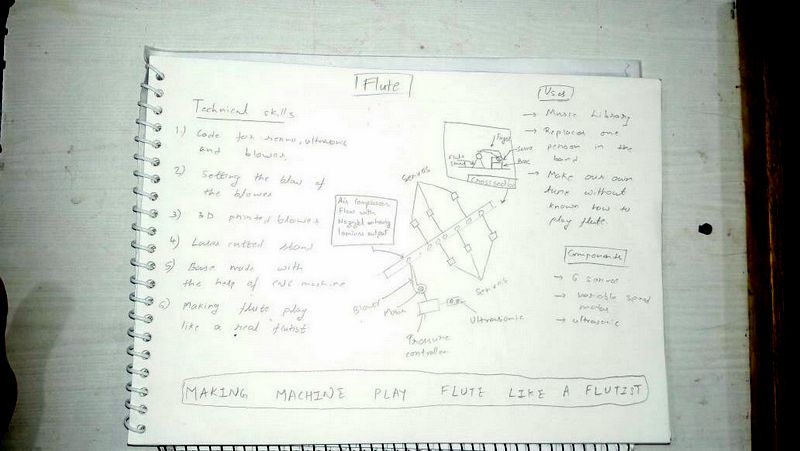 Flute
Technical skills
1) Code for servo, ultrasonic
and blower
2) Setting the blow of
the blower
3) 3D printed blower
4) Laser cutted stand
5) Base made with
the help of CNC machine
6) Making flute play
like a real flutist
Air compressor
Flow with
laminar output
Servos
Finger
Servo
Base
Flute
Crosssection
Blower
Motor
Pressure
controller
Ultrasonic
Servos
Uses
→ Music Library
→ Replaces one
person in the
band
→ Make our own
tune without
known how to
play flute.
Components
→ 6 servos
→ variable speed
motor
→ ultrasonic
MAKING MACHINE PLAY FLUTE LIKE A FLUTIST